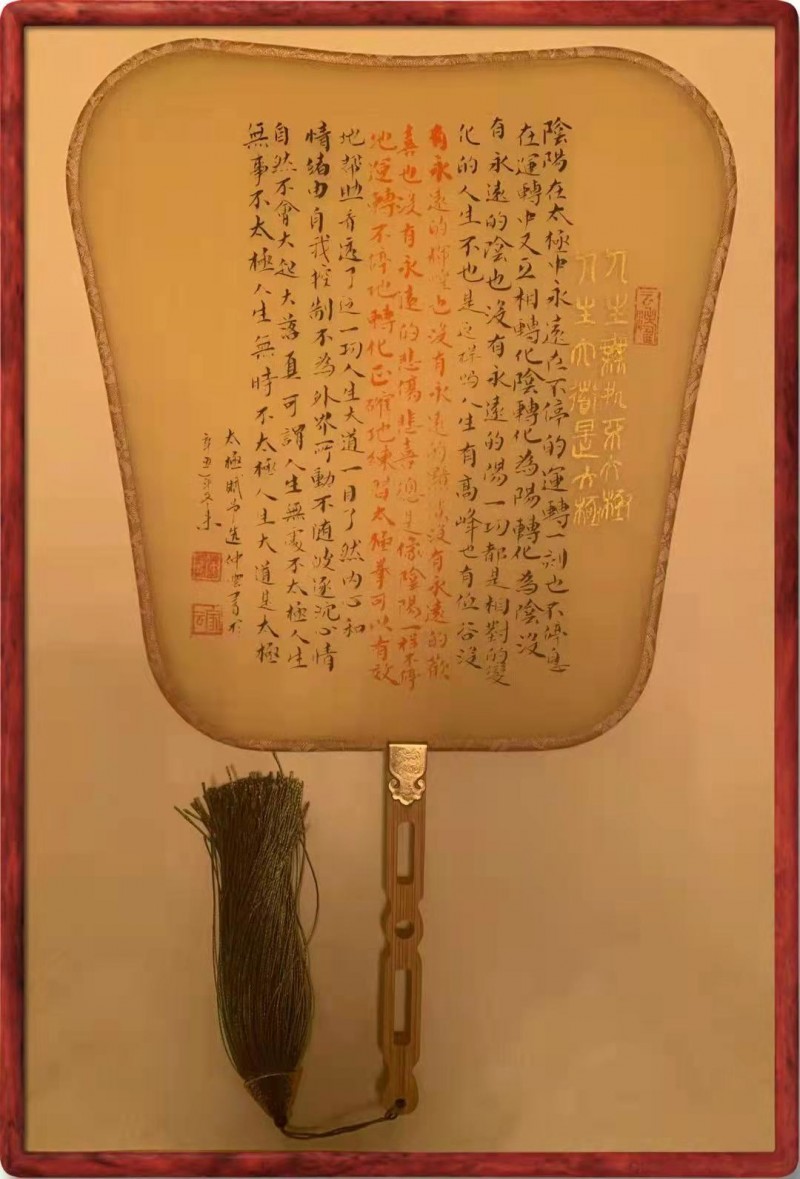 人生無處不太極
人生大道是太極
陰陽在太極中永遠在不停的運轉一刻也不停息
在運轉中又互相轉化陰轉化為陽轉化為陰沒
有永遠的陰也沒有永遠的陽一切都是相對的變
化的人生不也是这样吗人生有高峰也有低谷沒
有永遠的輝煌也沒有永遠的黯淡沒有永遠的歡
喜也沒有永遠的悲傷悲喜總是像陰陽一样不停
地運轉不停地轉化正確地練習太極拳可以有效
地幫助看透了这一切人生大道一目了然內心和
情緒由自我控制不為外界所動不随波逐流心情
自然不會大起大落真可謂人生無處不太極人生
無事不太極人生無時不太極人生大道是太極
太極賦 仲雲書於
辛丑年冬末